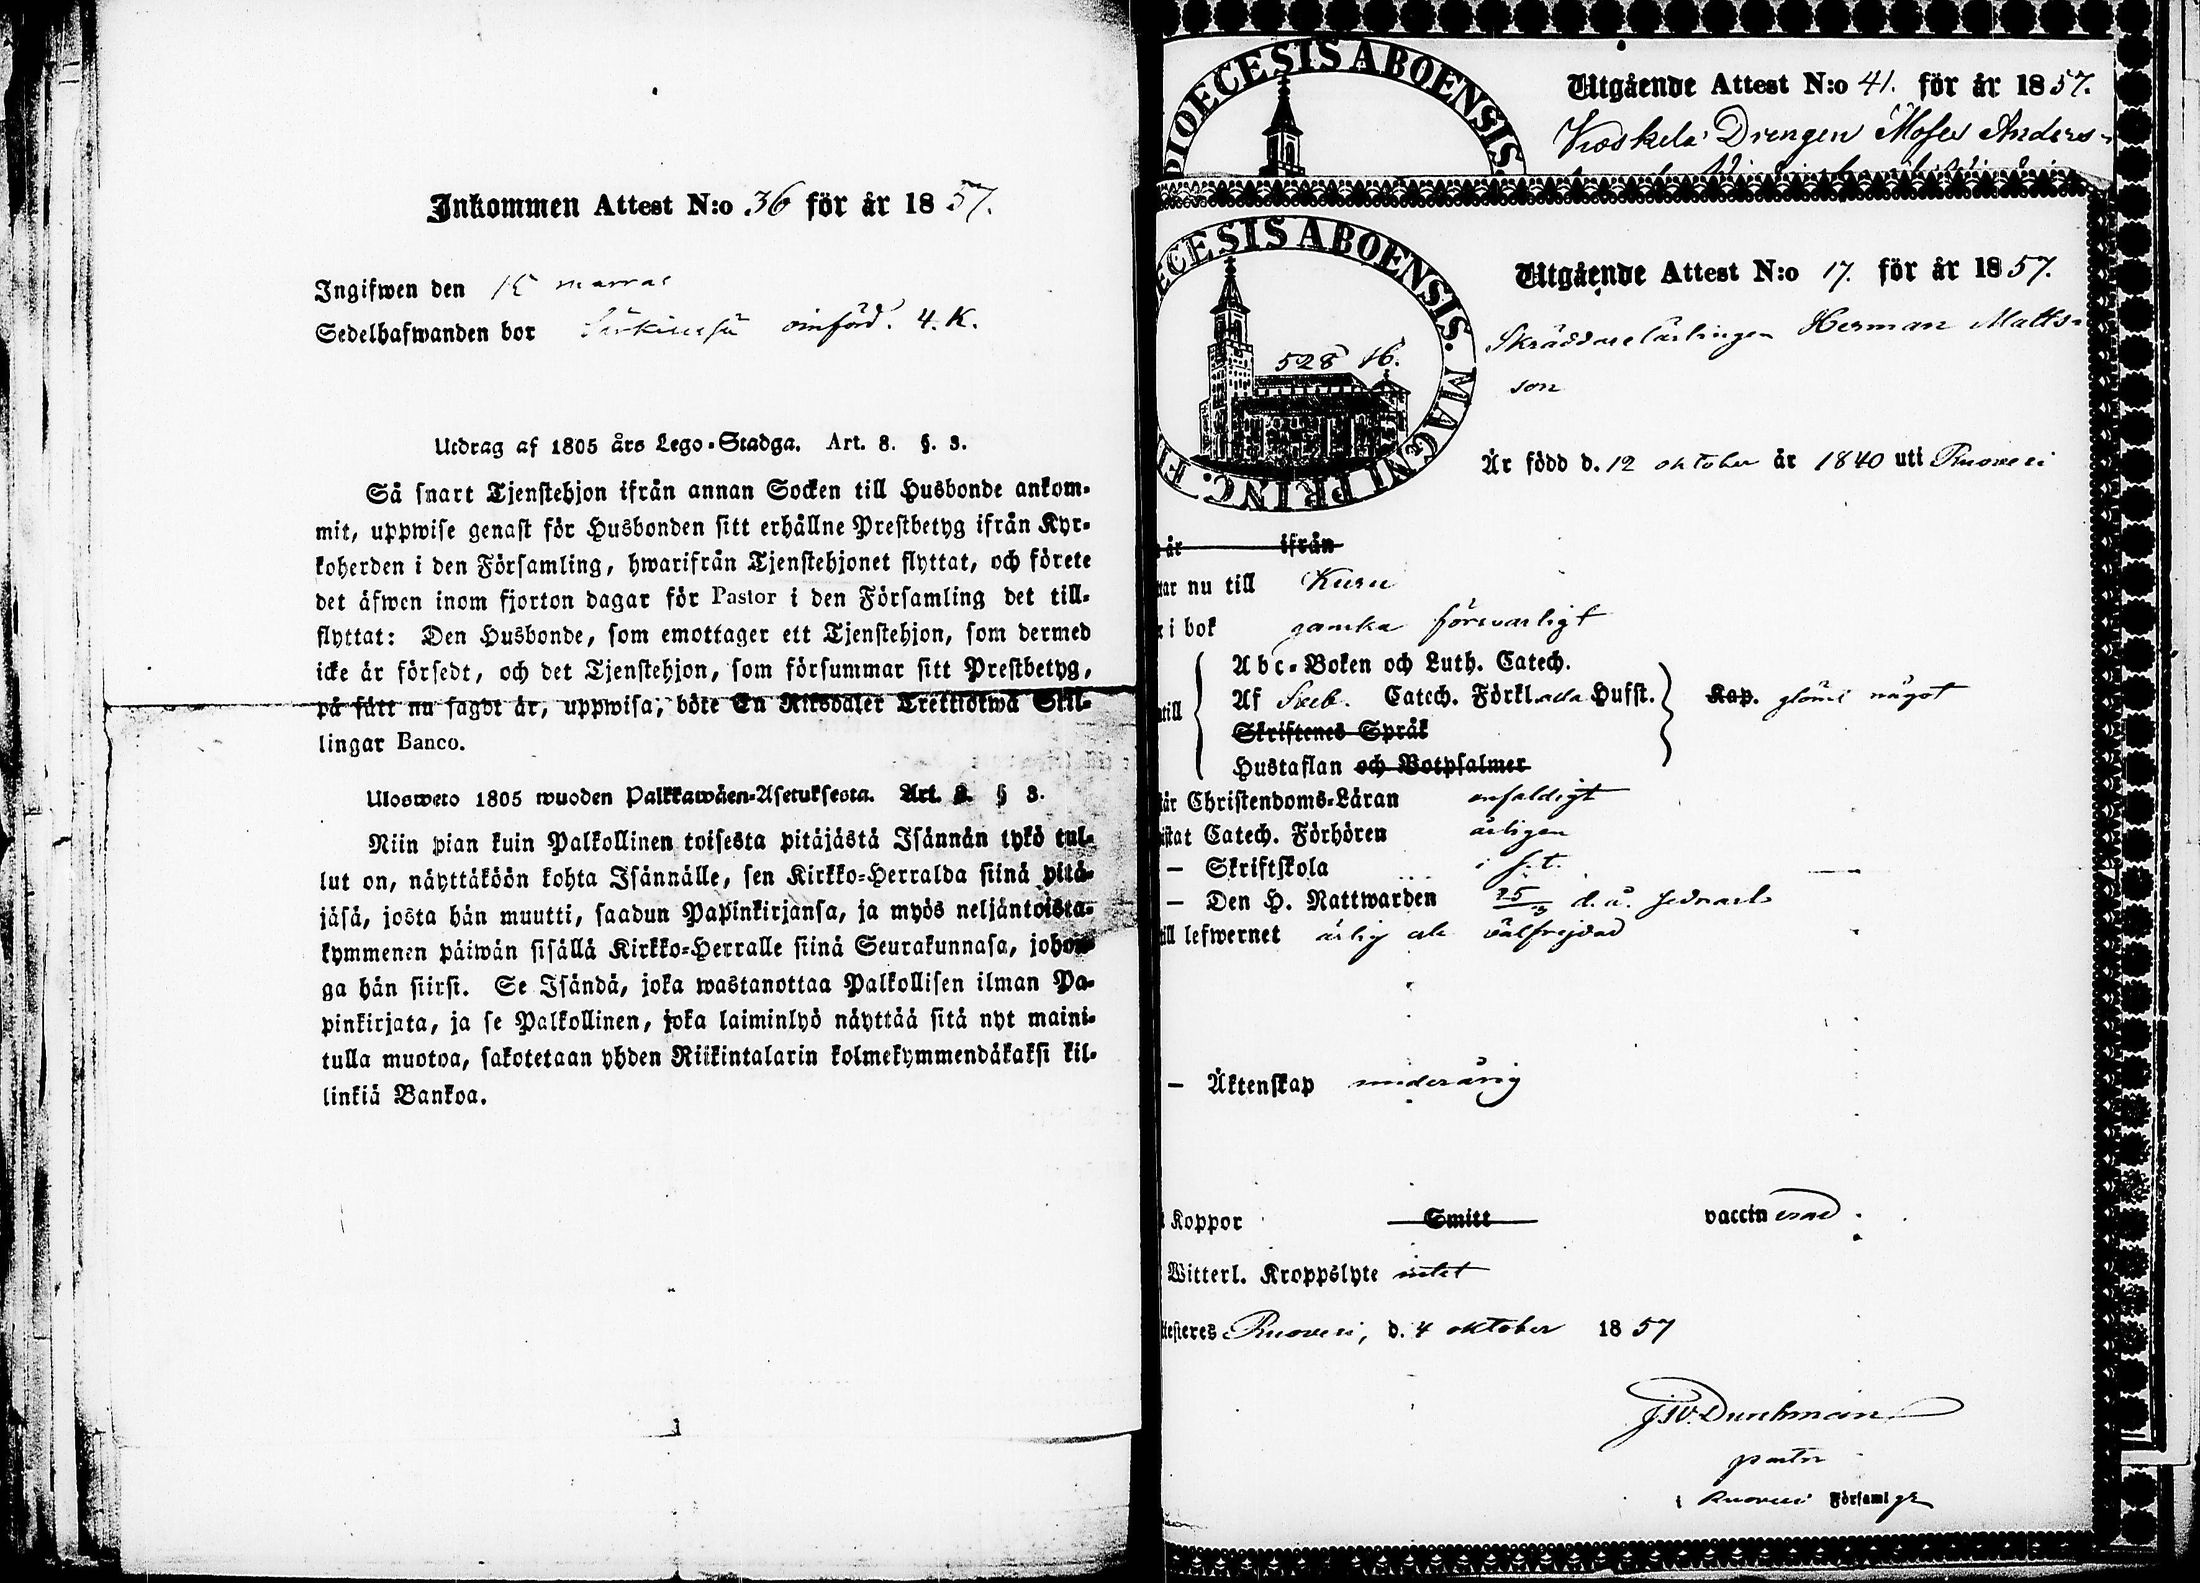 Inkommen Attest N:o 36 för år 1857.
Ingifwen den 15 marras
Sedelhafwanden bor omförd. 4. K.
Utdrag af 1805 års Lego-Stadga. Art. 8. §. 3.
Så snart Tjenstehjon ifrån annan Socken till Husbonde ankom-
mit, uppwise genast för Husbonden sitt erhållne Prestbetyg ifrån Kyr-
koherden i den Församling, hwarifrån Tjenstehjonet flyttat, och förete
det äfwen inom fjorton dagar för Pastor i den Församling det till-
flyttat: Den Husbonde, som emottager ett Tjenstehjon, som dermed
icke är försedt, och det Tjenstehjon, som försummar sitt Prestbetyg,
på sätt nu sagdt är, uppwisa, böte En Riksdaler Trettiotwå Skil-
lingar Banco.
Uloswето 1805 wuoden Palkkawäen-Asetuksesta. Art. 8. § 3.
Niin pian kuin Palkollinen toisesta pitäjästä Isännän tykö tul-
lut on, näyttäköön kohta Isännälle, sen Kirkko-Herralda siinä pitä-
jäsä, josta hän muutti, saadun Papinkirjansa, ja myös neljäntoista-
kymmenen päiwän sisällä Kirkko-Herralle siinä Seurakunnasa, johon-
ga hän siirsi. Se Isändä, joka wastanottaa Palkollisen ilman Pa-
pinkirjata, ja se Palkollinen, joka laiminlyö näyttää sitä nyt maini-
tulla muotoa, sakotetaan yhden Riikintalarin kolmekymmendäkaksi kil-
linkiä Bankoa.
DIOECESIS ABOENSIS.
Utgående Attest N:o 41. för år 1857.
Drengen Moses Anders-
ECESIS ABOENSIS. MAGNI PRINC. FI
528 16.
Utgående Attest N:o 17. för år 1857.
Skräddarelärlingen Herman Matts-
son
Är född d. 12 oktober år 1840 uti Ruovesi
år ifrån
tar nu till Kuru
i bok ganska försvarligt
Abc-Boken och Luth. Catech.
till Af Sveb. Catech. Förkl. Hufst. Kap. glömt något
Skriftenes Språk
Hustaflan och Botpsalmer
tår Christendoms-Läran enfaldigt
istat Catech. Förhören årligen
— Skriftskola i s. t.
— Den H. Nattwarden 25 d. å. sednast
till lefwernet ärlig och välfrejdad
— Äktenskap underårig
t Koppor Smitt vaccinerad
Witterl. Kroppslyte intet
testeres Ruovesi, d. 4 oktober 1857
pastor
i Ruovesi Församlg